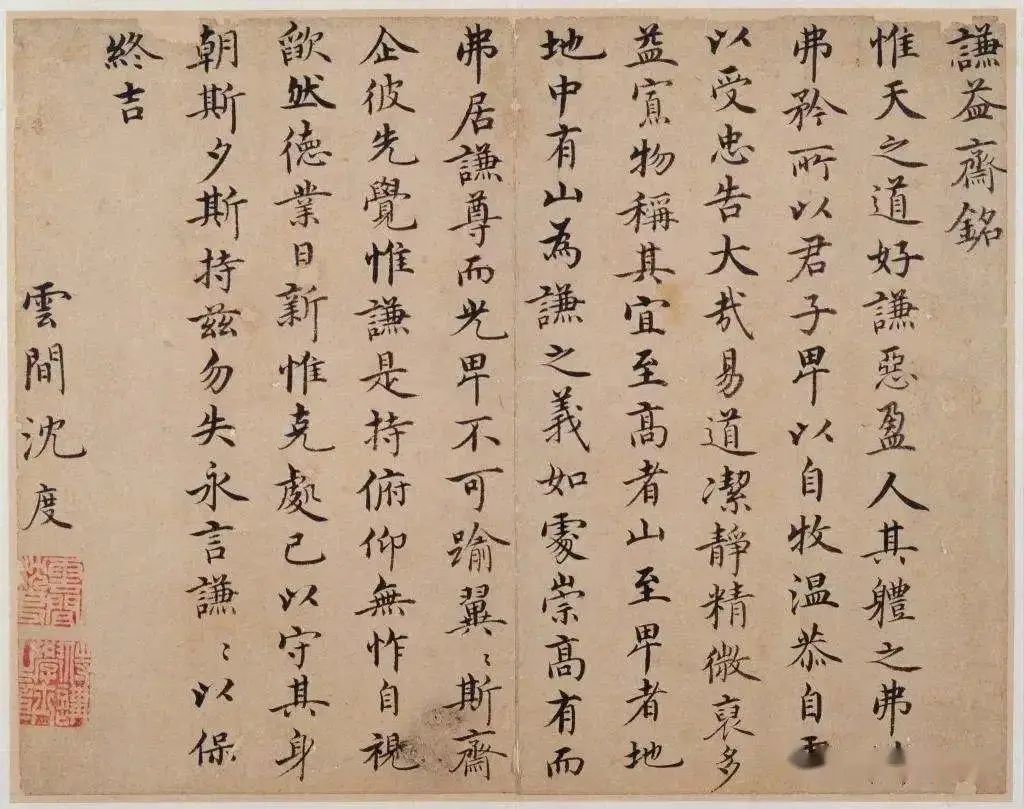 謙益齋銘
惟天之道好謙惡盈人其體之弗
弗矜所以君子卑以自牧温恭自
以受忠告大哉易道潔靜精微裒多
益寡物稱其宜至高者山至卑者地
地中有山為謙之義如處崇高有而
弗居謙尊而光卑不可踰翼〻斯齋
企彼先覺惟謙是持俯仰無怍自視
欿然德業日新惟克處己以守其身
朝斯夕斯持兹勿失永言謙〻以保
終吉
雲間沈度